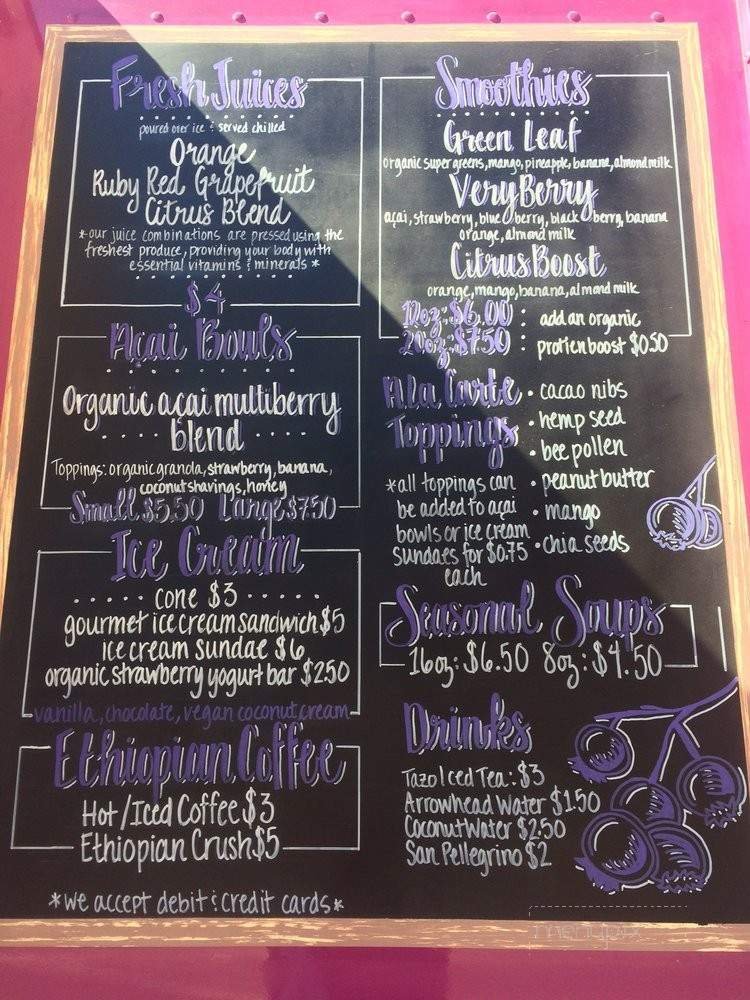 Fresh Juices
poured over ice & served chilled
Orange
Ruby Red Grapefruit
Citrus Blend
*our juice combinations are pressed using the
freshest produce, providing your body with
essential vitamins & minerals *
$4
Açai Bowls
Organic açai multiberry
blend
Toppings: organic granola, strawberry, banana,
coconut shavings, honey
Small $5.50 Large $7.50
Ice Cream
cone $3
gourmet ice cream sandwich $5
ice cream sundae $6
organic strawberry yogurt bar $2.50
vanilla, chocolate, vegan coconut cream
Ethiopian Coffee
Hot/Iced Coffee $3
Ethiopian Crush $5
*we accept debit & credit cards*
Smoothies
Green Leaf
organic super greens, mango, pineapple, banana, almond milk
Very Berry
açai, strawberry, blue berry, black berry, banana
orange, almond milk
Citrus Boost
orange, mango, banana, almond milk
12oz: $6.00 : add an organic
20oz: $7.50 : protien boost $0.50
Ala Carte
Toppings
*all toppings can
be added to açai
bowls or ice cream
sundaes for $0.75
each
• cacao nibs
• hemp seed
• bee pollen
• peanut butter
• mango
• chia seeds
Seasonal Soups
16oz: $6.50 8oz: $4.50
Drinks
Tazo Iced Tea: $3
Arrowhead Water $1.50
Coconut Water $2.50
San Pellegrino $2
menupix